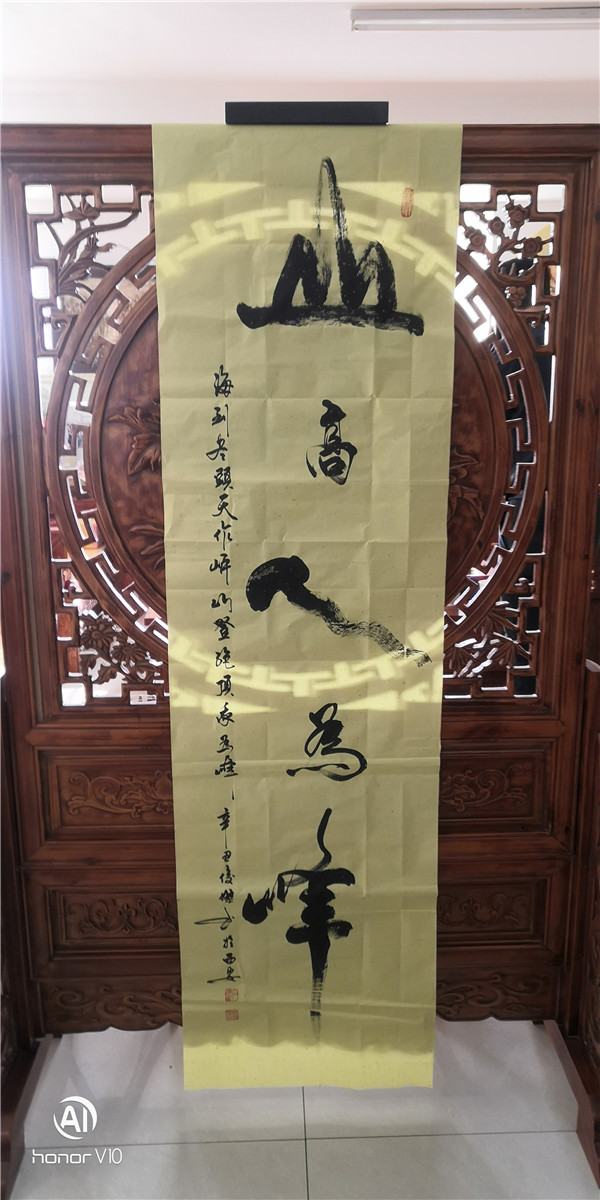 山高人为峰
海到尽头天作岸山登绝顶我为峰
辛丑俊樹书於西安
AI
honor V10